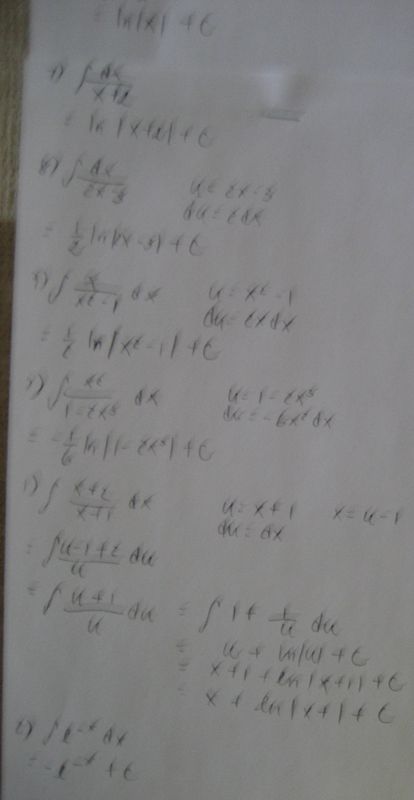 = ln|x| + C
∫ dx/(x+2)
= ln|x+2| + C
∫ dx/(2x-3)    u = 2x-3
du = 2dx
= 1/2 ln|2x-3| + C
∫ x/(x²-1) dx    u = x²-1
du = 2xdx
= 1/2 ln|x²-1| + C
∫ x²/(1-2x³) dx    u = 1-2x³
du = -6x²dx
= -1/6 ln|1-2x³| + C
∫ (x+2)/(x+1) dx    u = x+1    x = u-1
du = dx
= ∫ (u-1+2)/u du
= ∫ (u+1)/u du    = ∫ 1 + 1/u du
= u + ln|u| + C
= x+1 + ln|x+1| + C
= x + ln|x+1| + C
∫ e^-x dx
= -e^-x + C